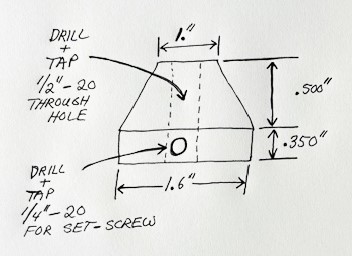 DRILL
+
TAP
1/2"-20
THROUGH
HOLE
1."
.500"
.350"
DRILL
+
TAP
1/4"-20
FOR SET-SCREW
1.6"